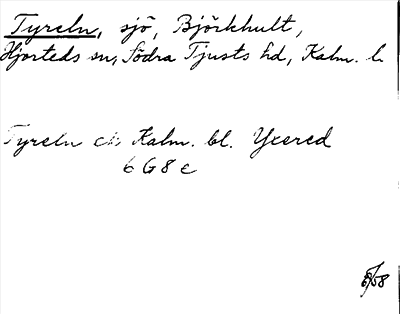 Tyreln, sjö, Björkhult,
Hjorteds sn, Södra Tjusts hd, Kalm. l.
Tyreln Kalm. bl. Yxered
6 G 8 e